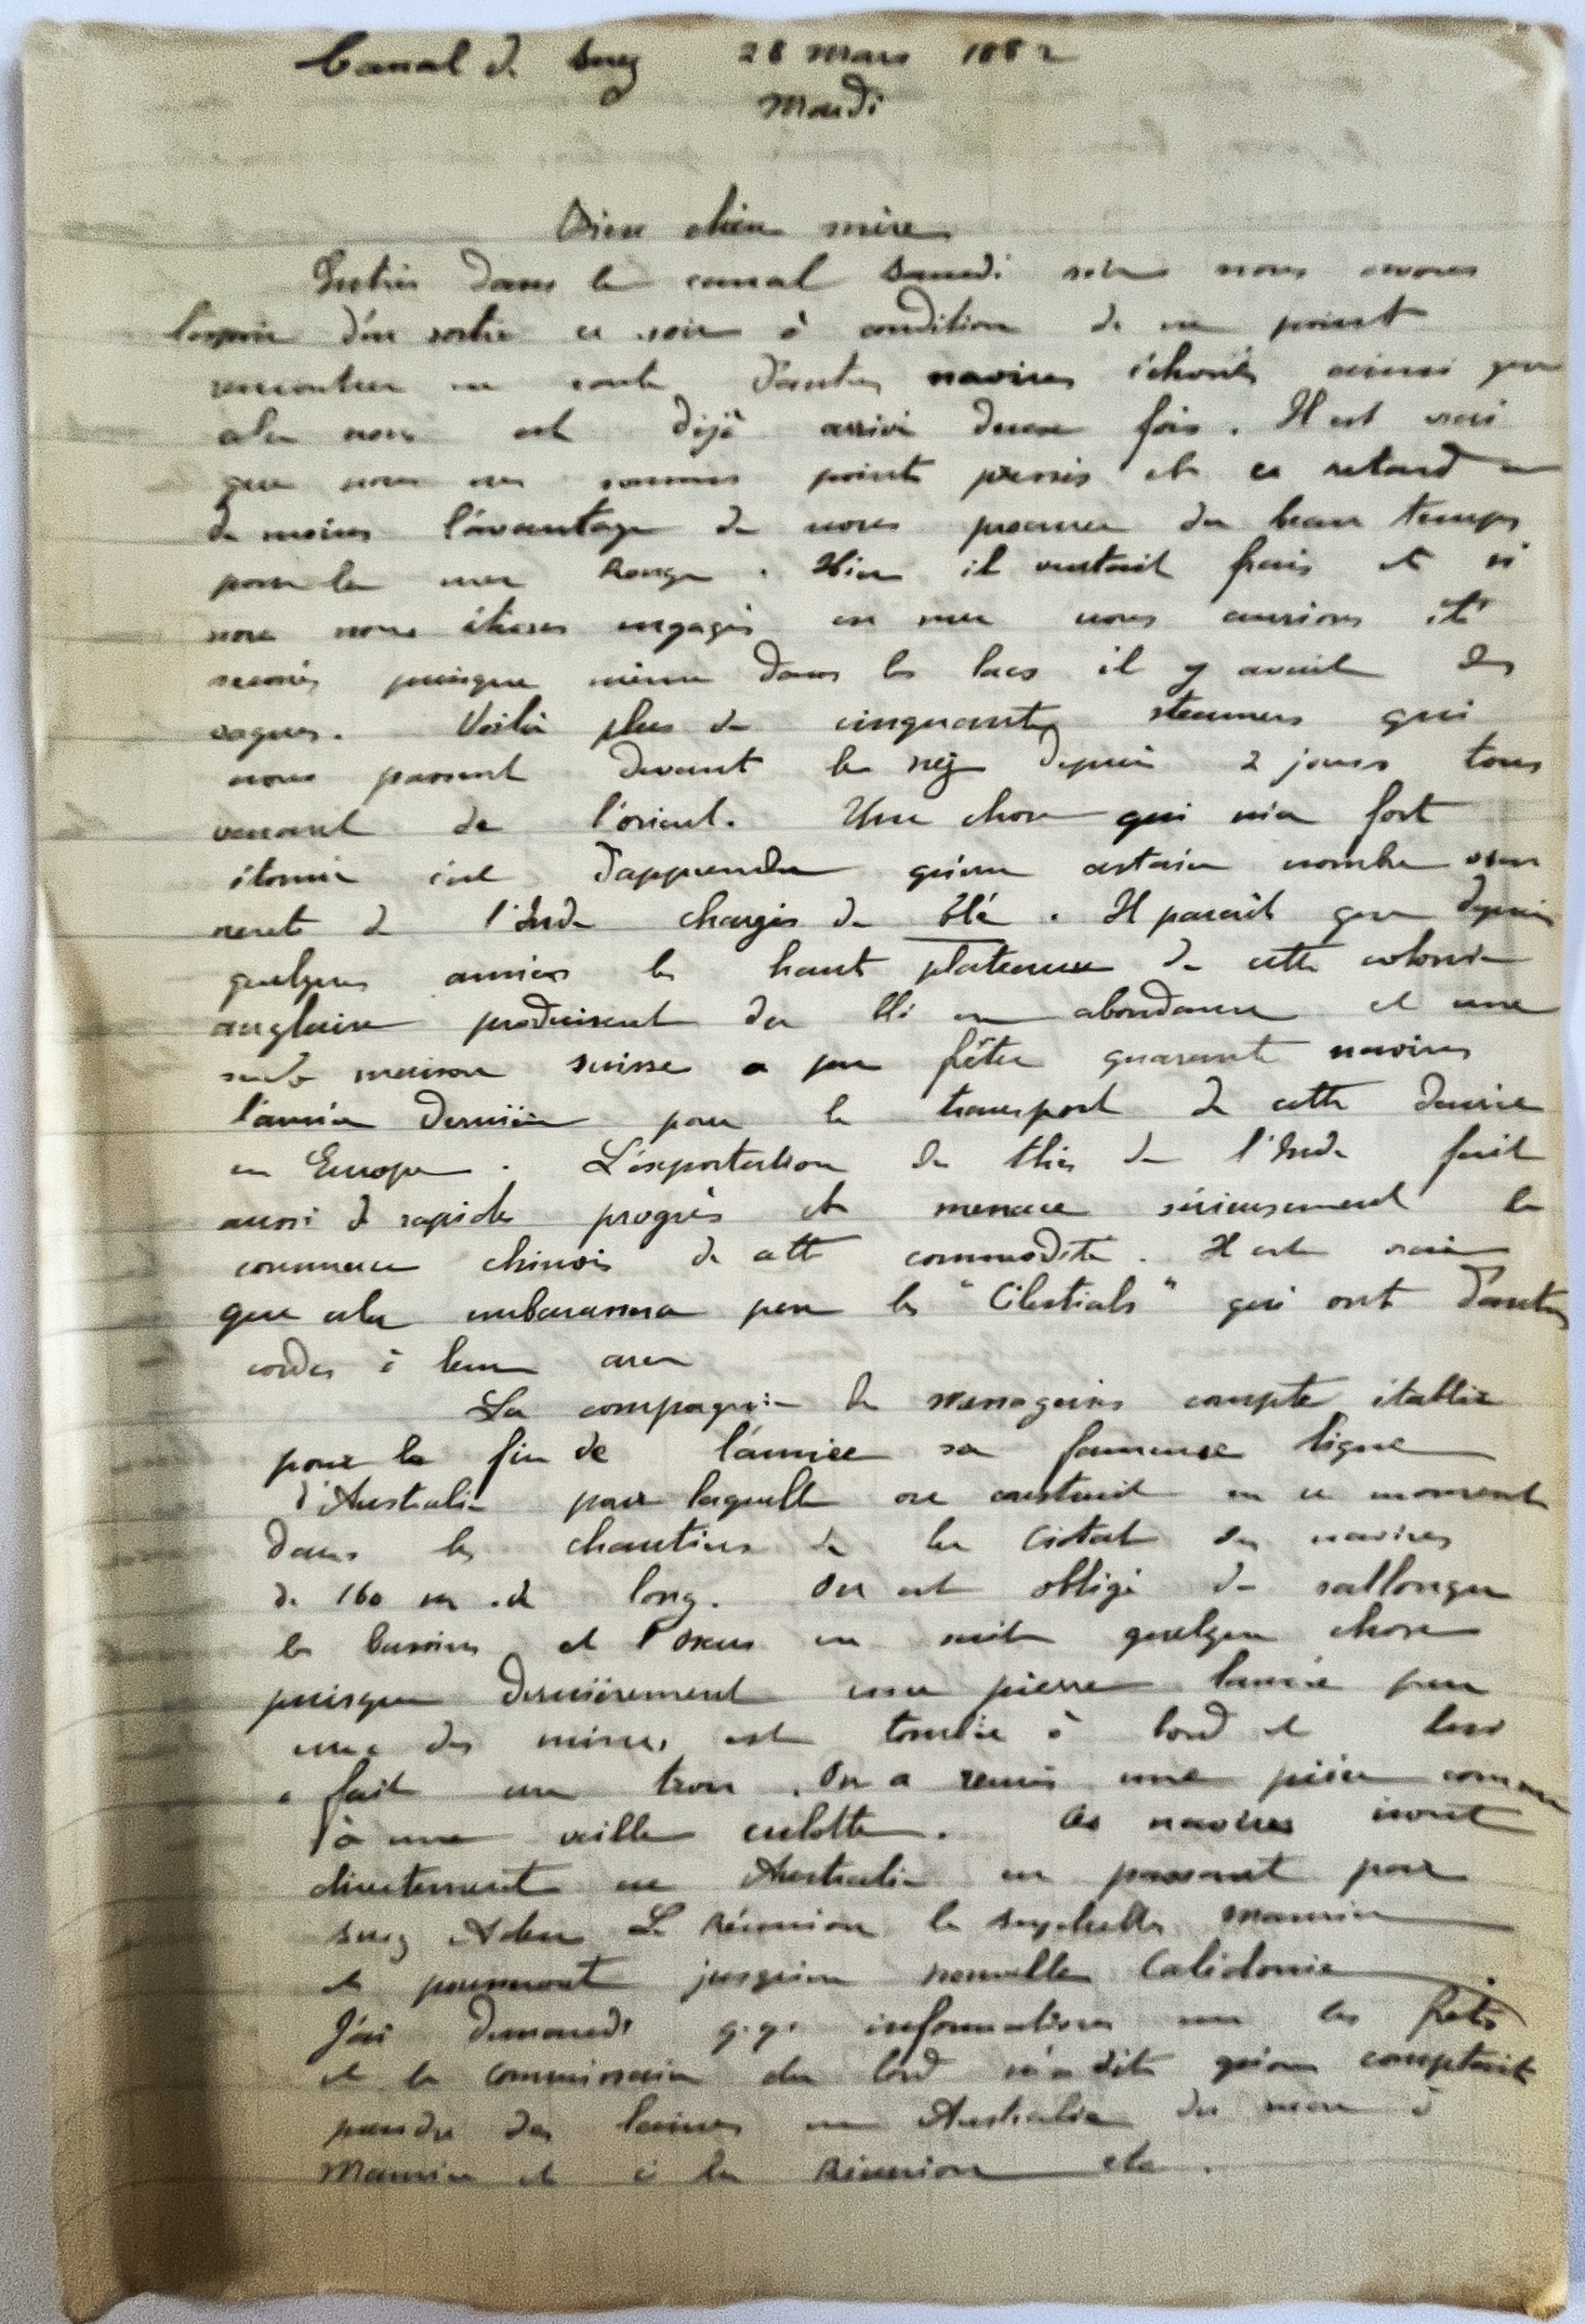 Canal de Suez 28 Mars 1882
Mardi
Bien chère mère
Entrés dans le canal Samedi soir nous avons
l'espoir d'en sortir ce soir à condition de ne point
rencontrer en route d'autres navires échoués ainsi que
cela nous est déjà arrivé deux fois. Il est vrai
que nous ne sommes point pressés et ce retard a
du moins l'avantage de nous procurer du beau temps
pour la mer Rouge. Hier il ventait frais et si
nous nous étions engagés en mer nous aurions été
secoués puisque même dans les lacs il y avait des
vagues. Voilà plus de cinquante steamers qui
nous passent devant le nez depuis 2 jours tous
venant de l'orient. Une chose qui m'a fort
étonné c'est d'apprendre qu'un certain nombre vien
nent de l'Inde chargés de blé. Il parait que depuis
quelques années les haut plateaux de cette colonie
anglaise produisent du blé en abondance et une
seule maison suisse a pu fréter quarante navires
l'année dernière pour le transport de cette denrée
en Europe. L'exportation du thé de l'Inde fait
aussi de rapides progrès et menace sérieusement le
commerce chinois de cette commodité. Il est vrai
que cela embarassera peu les "Célestials" qui ont d'autres
cordes à leur arc
La compagnie des Messageries compte établir
pour la fin de l'année sa fameuse ligne
d'Australie pour laquelle on construit en ce moment
dans les chantiers de la Ciotat des navires
de 160 m. de long. On est obligé de rallonger
les bassins et l'Oxus en sait quelque chose
puisque dernièrement une pierre lancée par
une des mines est tombée à bord et lui
a fait un trou. On a remis une pièce comme
à une vieille culotte. Ces navires iront
directement en Australie en passant par
Suez Aden La Réunion les Seychelles Maurice
et pousseront jusqu'en nouvelle Calédonie.
J'ai demandé q.q. informations sur les frêts
et le commissaire du bord m'a dit qu'on comptait
prendre des laines en Australie du sucre à
Maurice et à la Réunion etc.